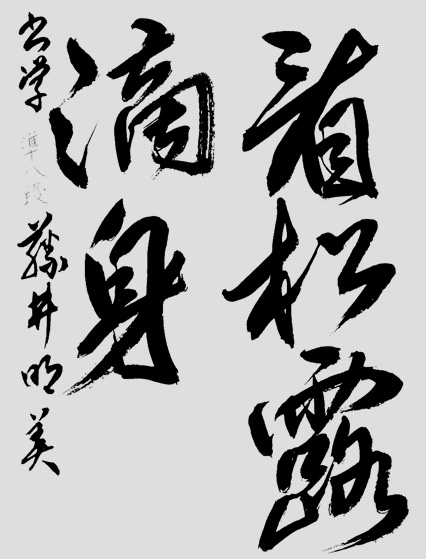 看松露
滴身
書学 準八段 藤井明美